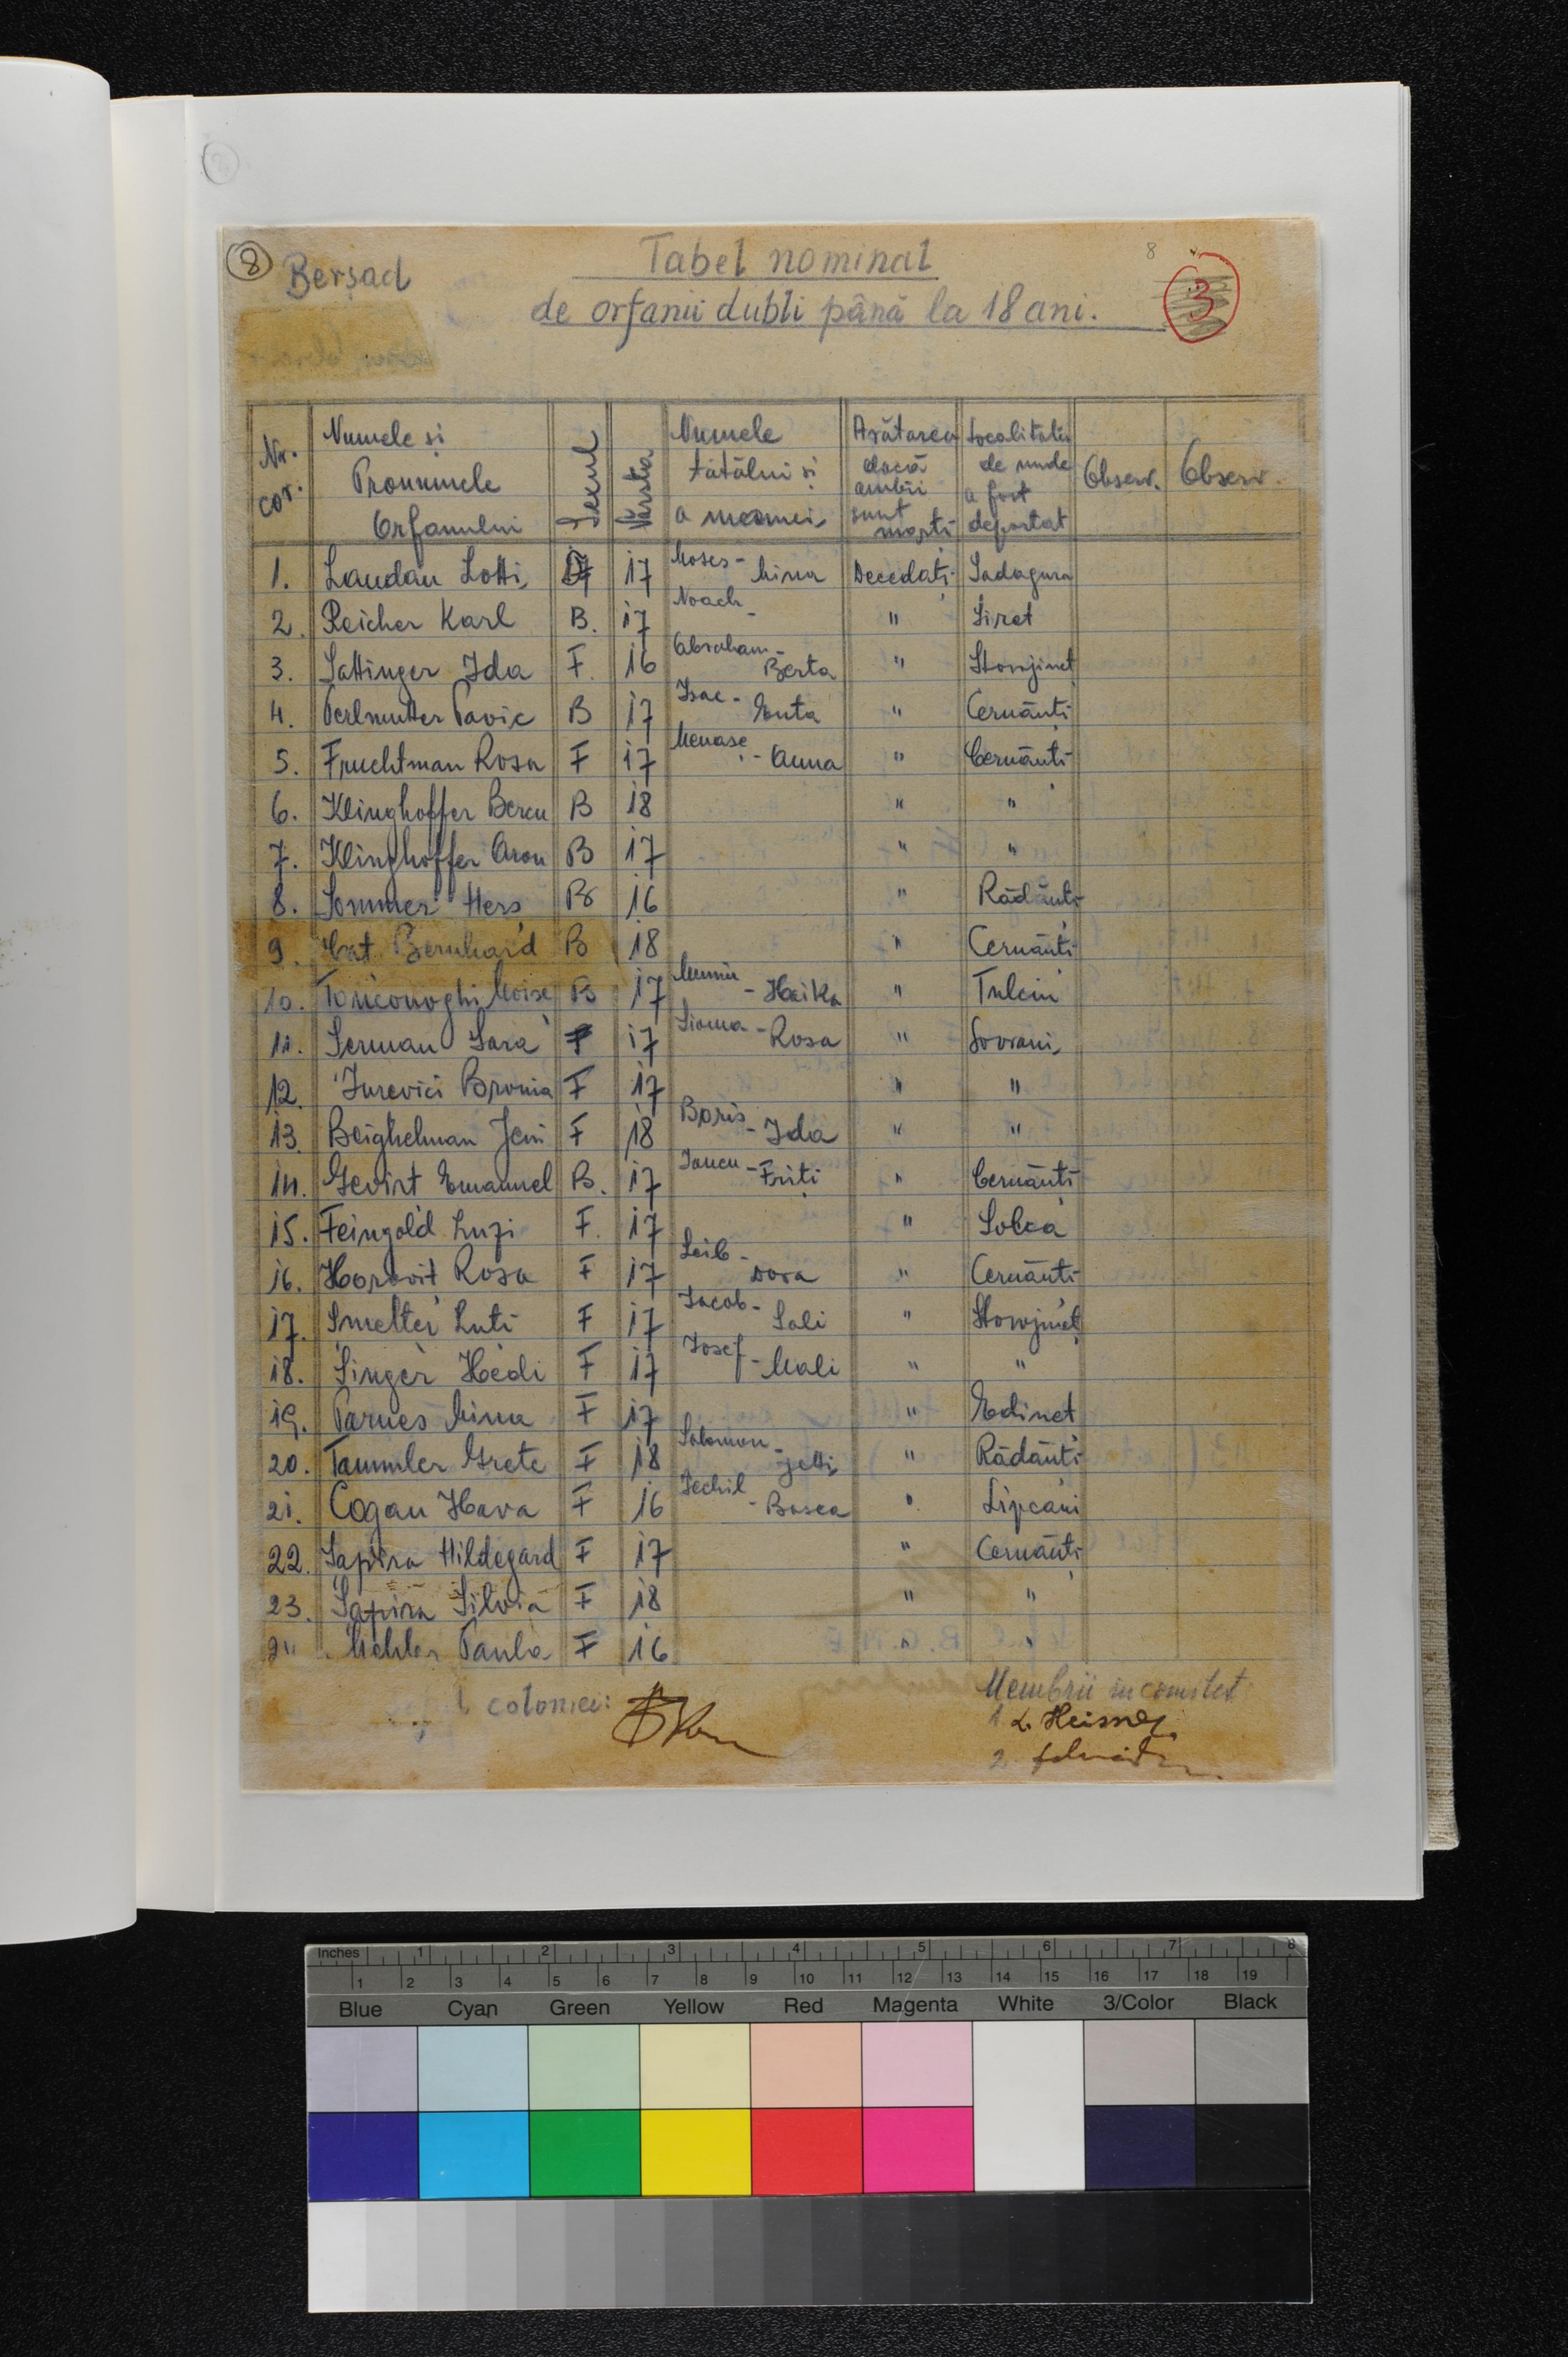 8
8 Berșad Tabel nominal 8
de orfanii dubli până la 18 ani. 3
Nr. cor. Numele și Pronumele Orfanului Sexul Vârsta Numele tatălui și a mamei Arătarea dacă ambii sunt morți Localitatea de unde a fost deportat Observ. Observ.
1. Landau Lotti F 17 Moses - Mina Decedați Sadagura
2. Reicher Karl B. 17 Noach - " Siret
3. Sattinger Ida F. 16 Abraham - Berta " Storojineț
4. Perlmutter Pavic B 17 Isac - Enta " Cernăuți
5. Fruchtman Rosa F 17 Menașe - Anna " Cernăuți
6. Klinghoffer Bercu B 18 " "
7. Klinghoffer Aron B 17 " "
8. Sommer Herș B 16 " Rădăuți
9. Bernhard B 18 " Cernăuți
10. Moise B 17 - Haika " Tulcin
11. Șerman Sara F 17 Sioma - Rosa " Sovrani
12. Jurevici Bronia F 17 " "
13. Beighelman Jeni F 18 Boris - Ida " "
14. Gevirt Emanuel B. 17 Iancu - Friți " Cernăuți
15. Feingold Luzi F. 17 " Solca
16. Horovit Rosa F 17 Leib - Dora " Cernăuți
17. Șmelter Luti F 17 Jacob - Sali " Storojineț
18. Singer Hedi F 17 Josef - Mali " "
19. Parnes Mina F 17 " Edineț
20. Tammler Grete F 18 Solomon - Jetti " Rădăuți
21. Cogan Hava F 16 Jechil - Basea " Lipcani
22. Șapira Hildegard F 17 " Cernăuți
23. Șapira Silvia F 18 " "
24. Mehler Paula F 16 " "
coloniei: Membrii in comitet
1 L. Heisner
2
Inches 1 2 3 4 5 6 7 8
1 2 3 4 5 6 7 8 9 10 11 12 13 14 15 16 17 18 19
Blue Cyan Green Yellow Red Magenta White 3/Color Black